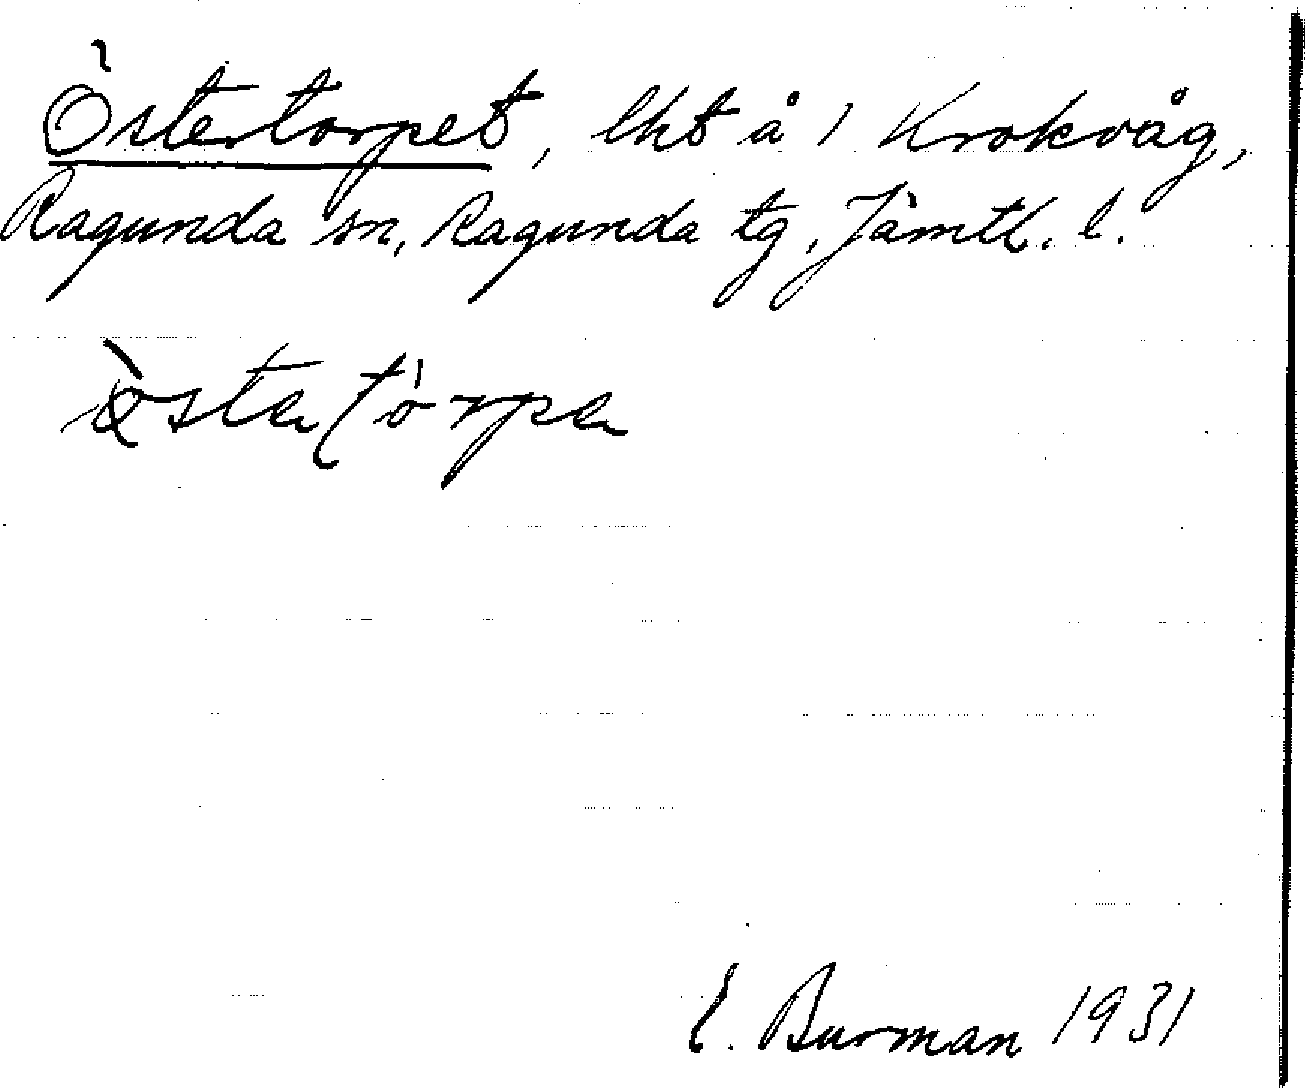 Östertorpet, lht å 1 Krokvåg,
Ragunda sn, Ragunda tg, Jämtl. l.
E. Burman 1931